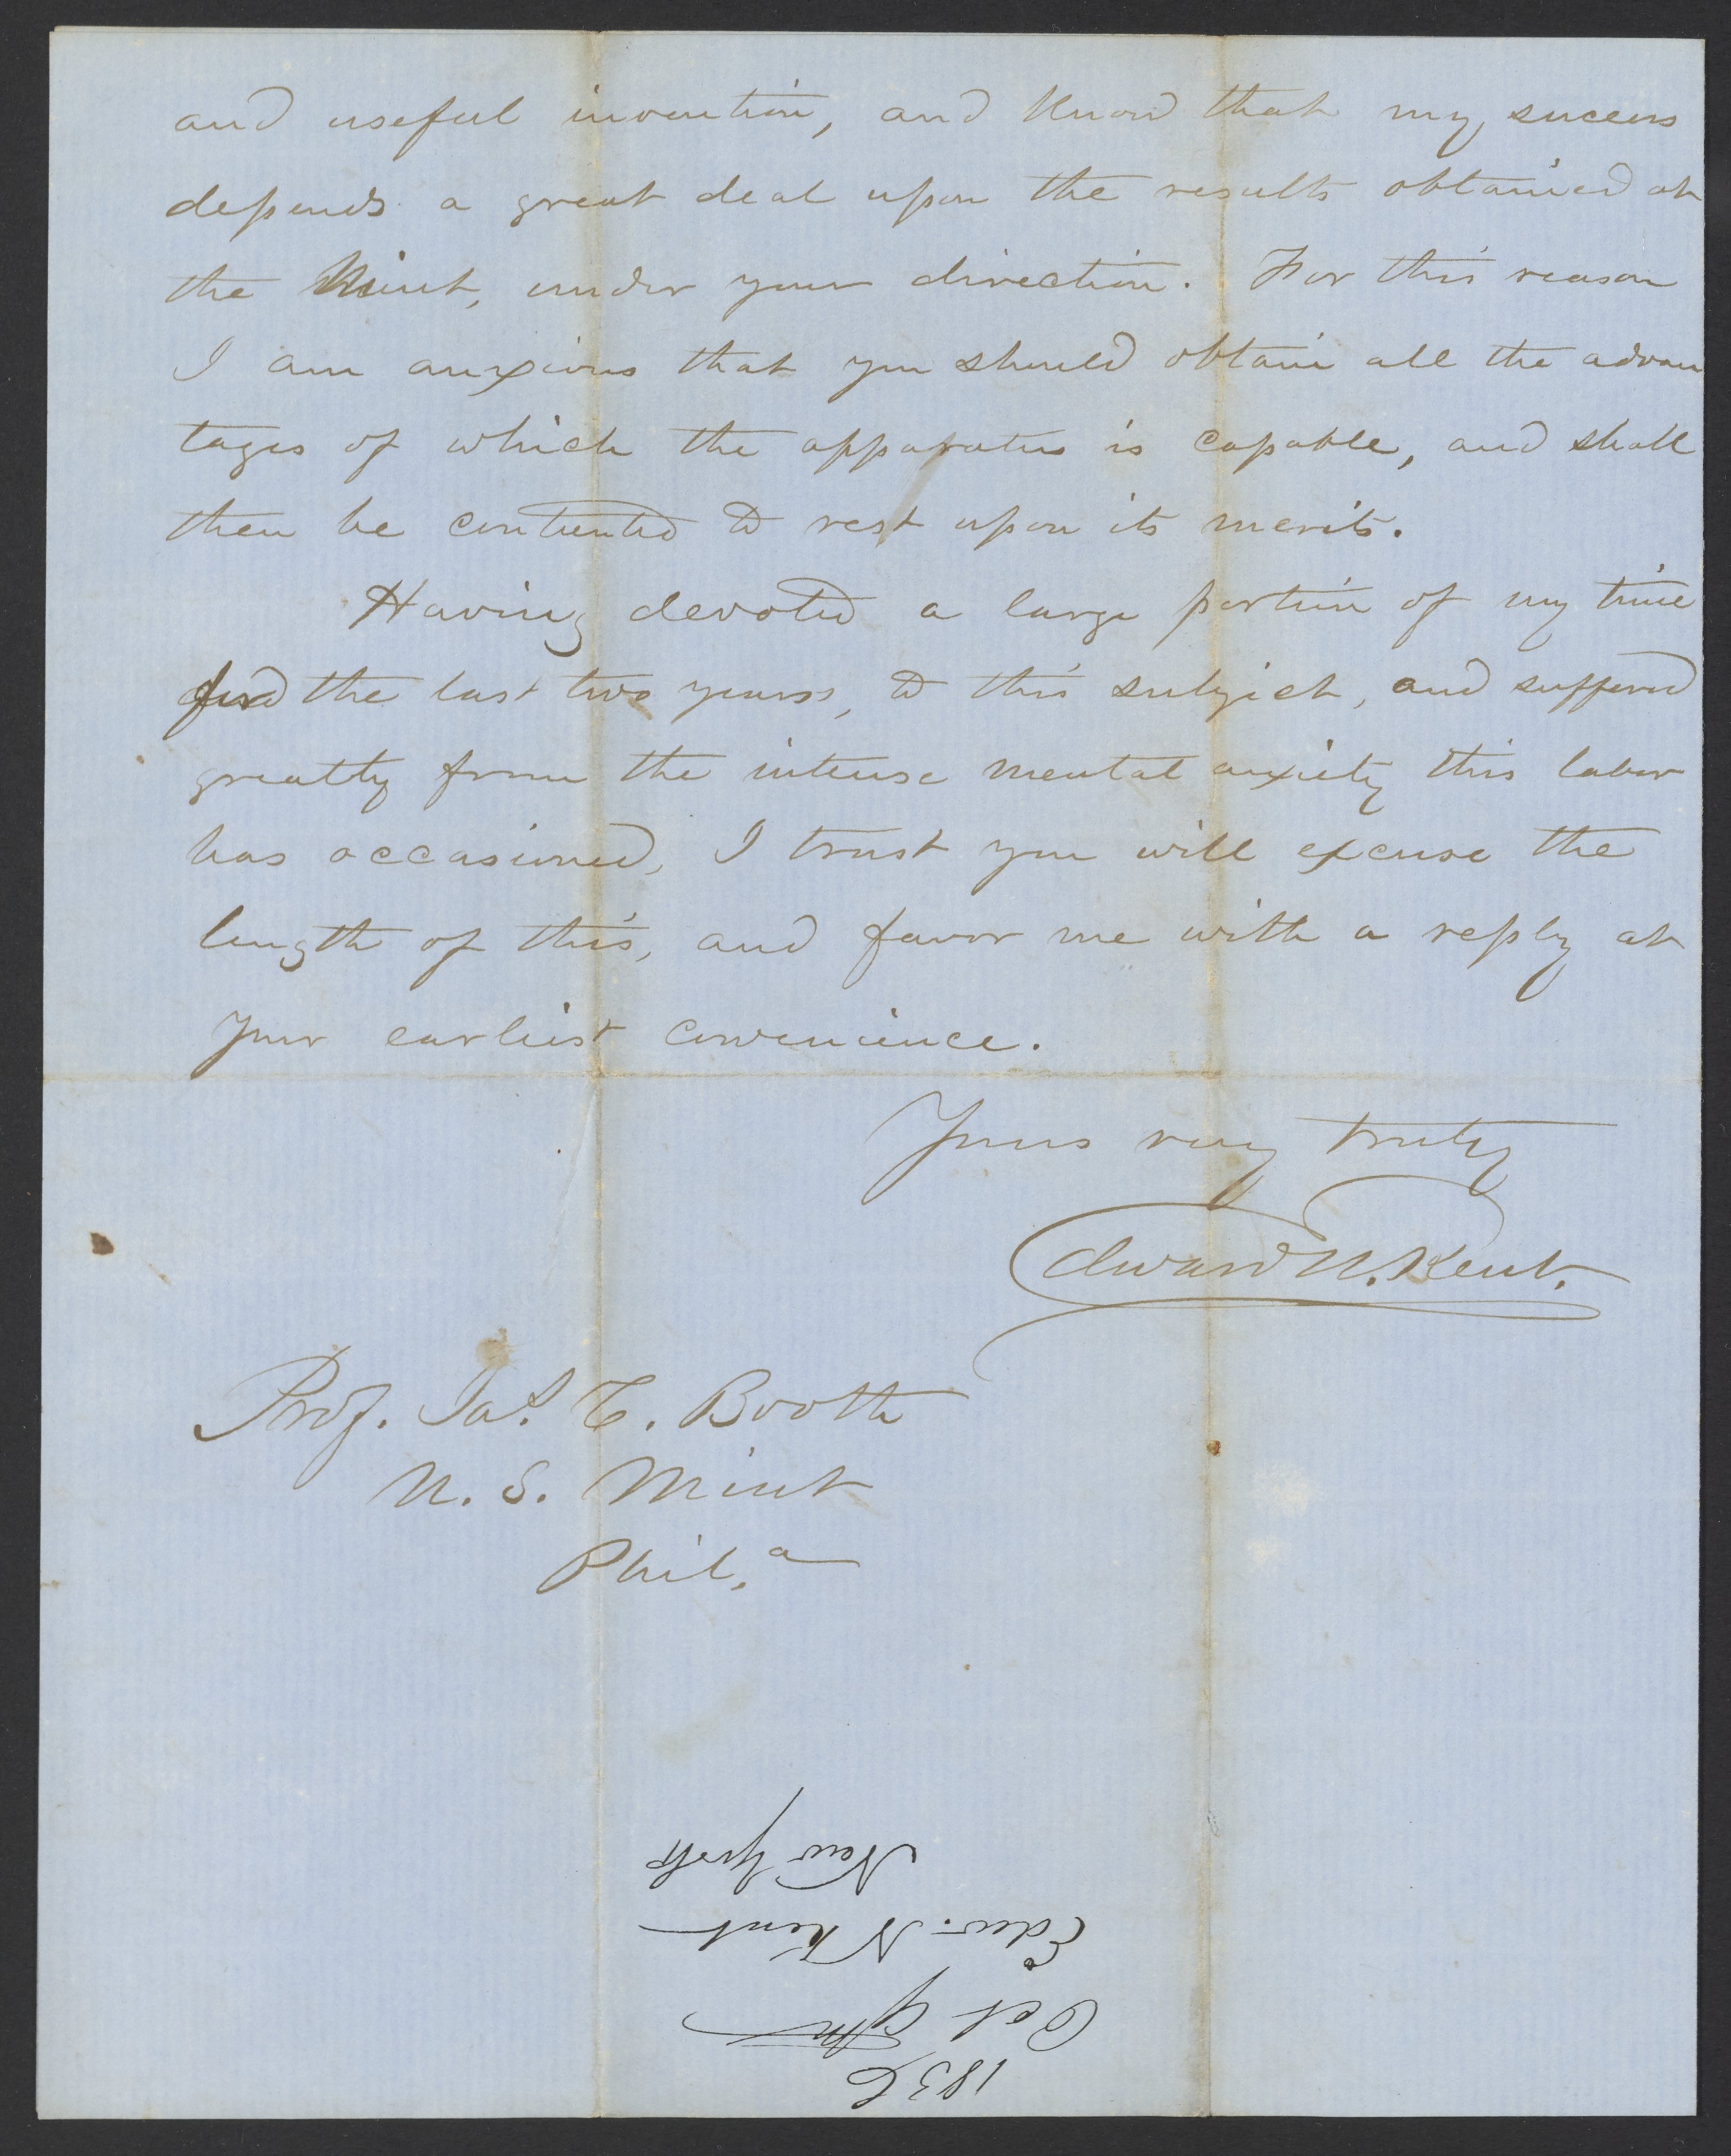 and useful invention, and know that my success
depends a great deal upon the results obtained at
the Mint, under your direction. For this reason
I am anxious that you should obtain all the advan
tages of which the apparatus is capable, and shall
then be contented to rest upon its merits.
Having devoted a large portion of my time
for the last two years, to this subject, and suffered
greatly from the intense mental anxiety this labor
has occasioned, I trust you will excuse the
length of this, and favor me with a reply at
your earliest convenience.
Yours very truly
Edward N. Kent.
Prof. Jas. C. Booth
U. S. Mint
Phil.a
1856
Oct 9th
Edw. N Kent
New York